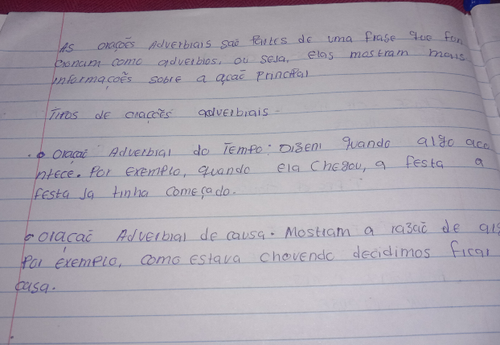 As orações Adverbiais saõ Partes de uma frase que fun
cionam como advérbios, ou seja, elas mostram mais
informações sobre a açaõ Principal
Tipos de orações adverbiais.
• Oraçaõ Adverbial do Tempo: Dizem quando algo aco
ntece. Por exemplo, quando ela chegou, a festa a
festa Ja tinha começado.
• oraçaõ Adverbial de causa. Mostram a razaõ de alg
Por exemplo, como estava chovendo decidimos ficar
casa.